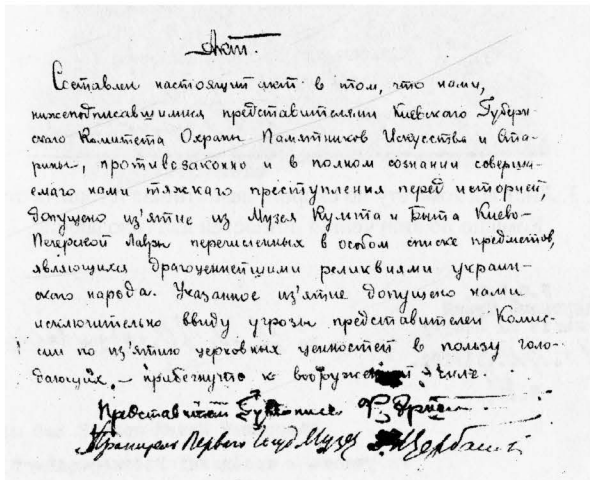 Акт.
Составлен настоящий акт в том, что нами,
нижеподписавшимися представителями Киевскаго Губерн-
скаго Комитета Охраны Памятников Искусства и Ста-
рины, противозаконно и в полном сознании соверша-
емаго нами тяжкаго преступления перед историей,
допущено из'ятие из Музея Культа и Быта Киево-
Печерской Лавры перечисленных в особом списке предметов,
являющихся драгоценнейшими реликвиями украин-
скаго народа. Указанное из'ятие допущено нами
исключительно ввиду угрозы представителей Комис-
сии по из'ятию церковных ценностей в пользу голо-
дающих, – прибегнуть к вооруженной силе.
Представители Ф. Эрнст
Перваго Музея Щербаківський